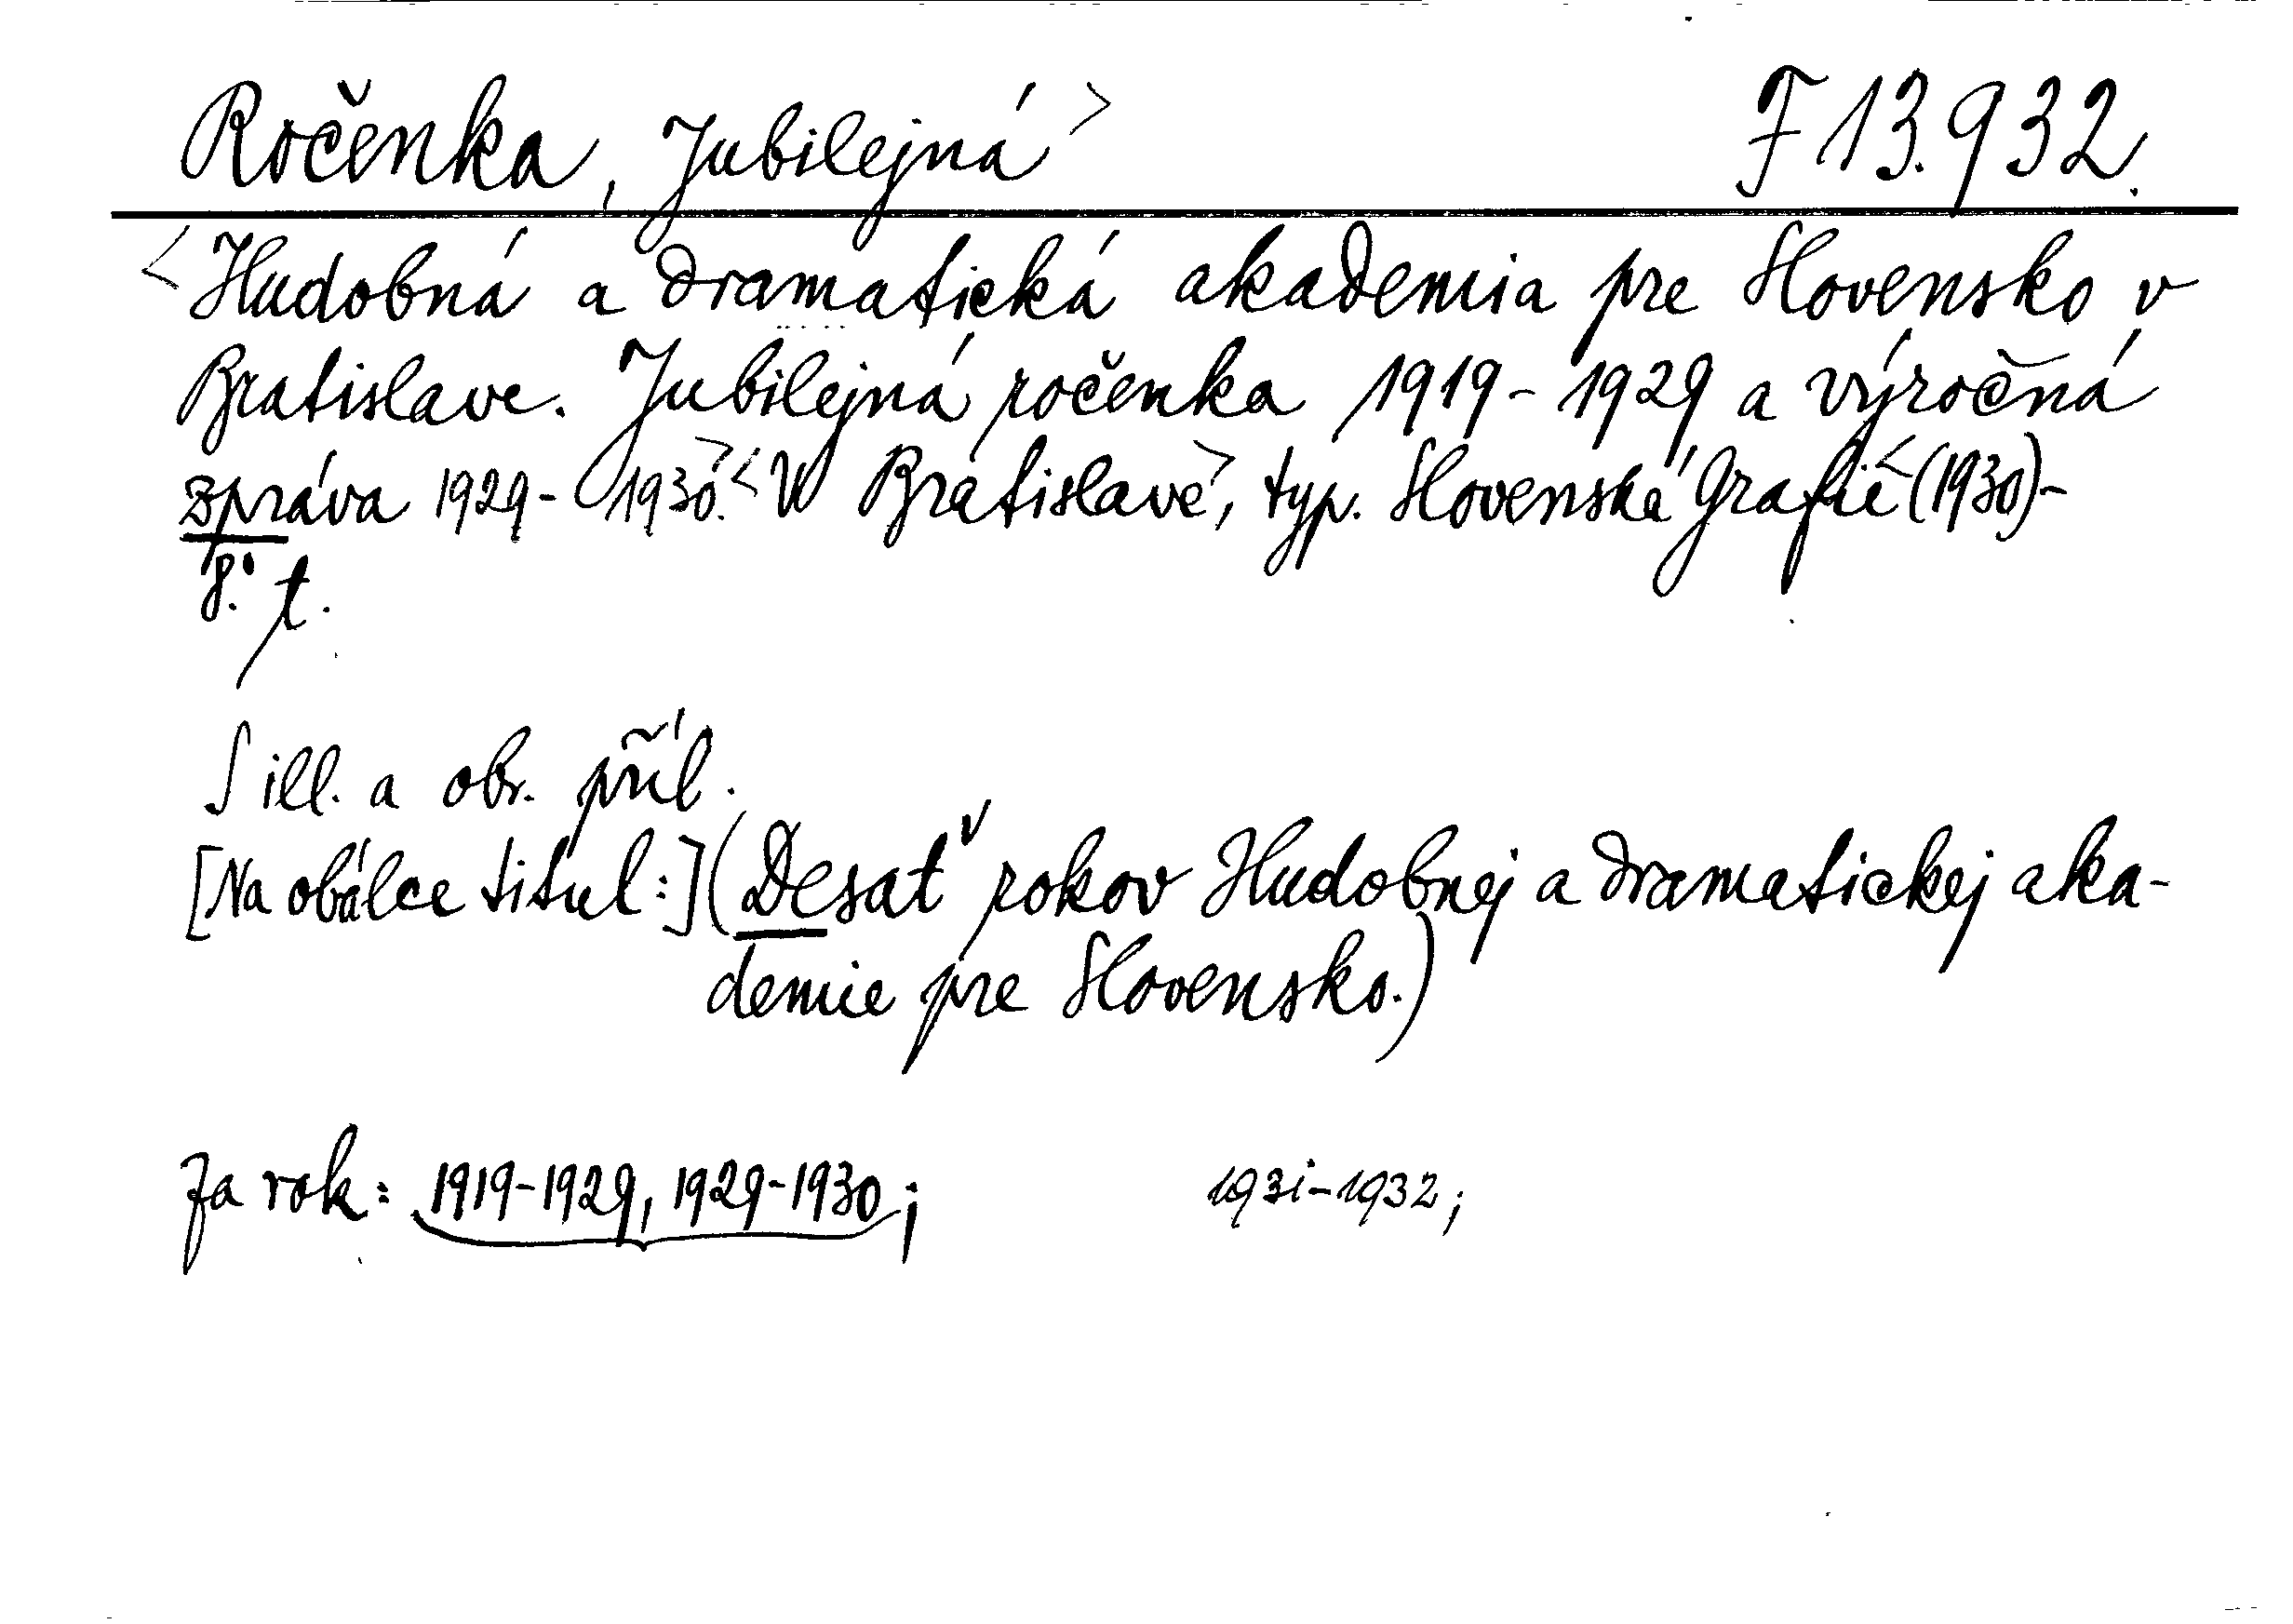 Ročenka, Jubilejná> F 13.932.
<Hudobná a dramatická akademia pre Slovensko v
Bratislave. Jubilejná ročenka 1919-1929 a výročná
zpráva 1929-1930.> <V Bratislave>, typ. Slovenská Grafie <(1930)-
8.° t.
S ill. a obr. příl.
[Na obálce titul:] (Desať rokov Hudobnej a dramatickej aka-
demie pre Slovensko.)
Za rok: 1919-1929, 1929-1930; 1931-1932;